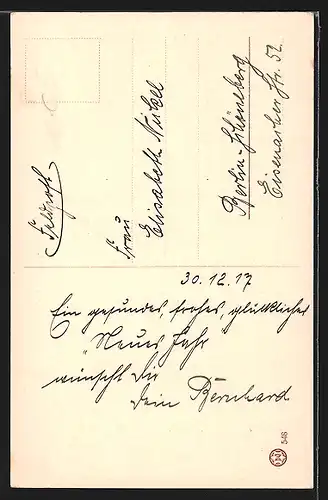 Feldpost
Frau
Elisabeth
Berlin-Schöneberg
Eisenacher Str. 52
30.12.17
Ein gesundes, frohes, glückliches
"Neues Jahr"
wünscht Dir
Dein Bernhard
546